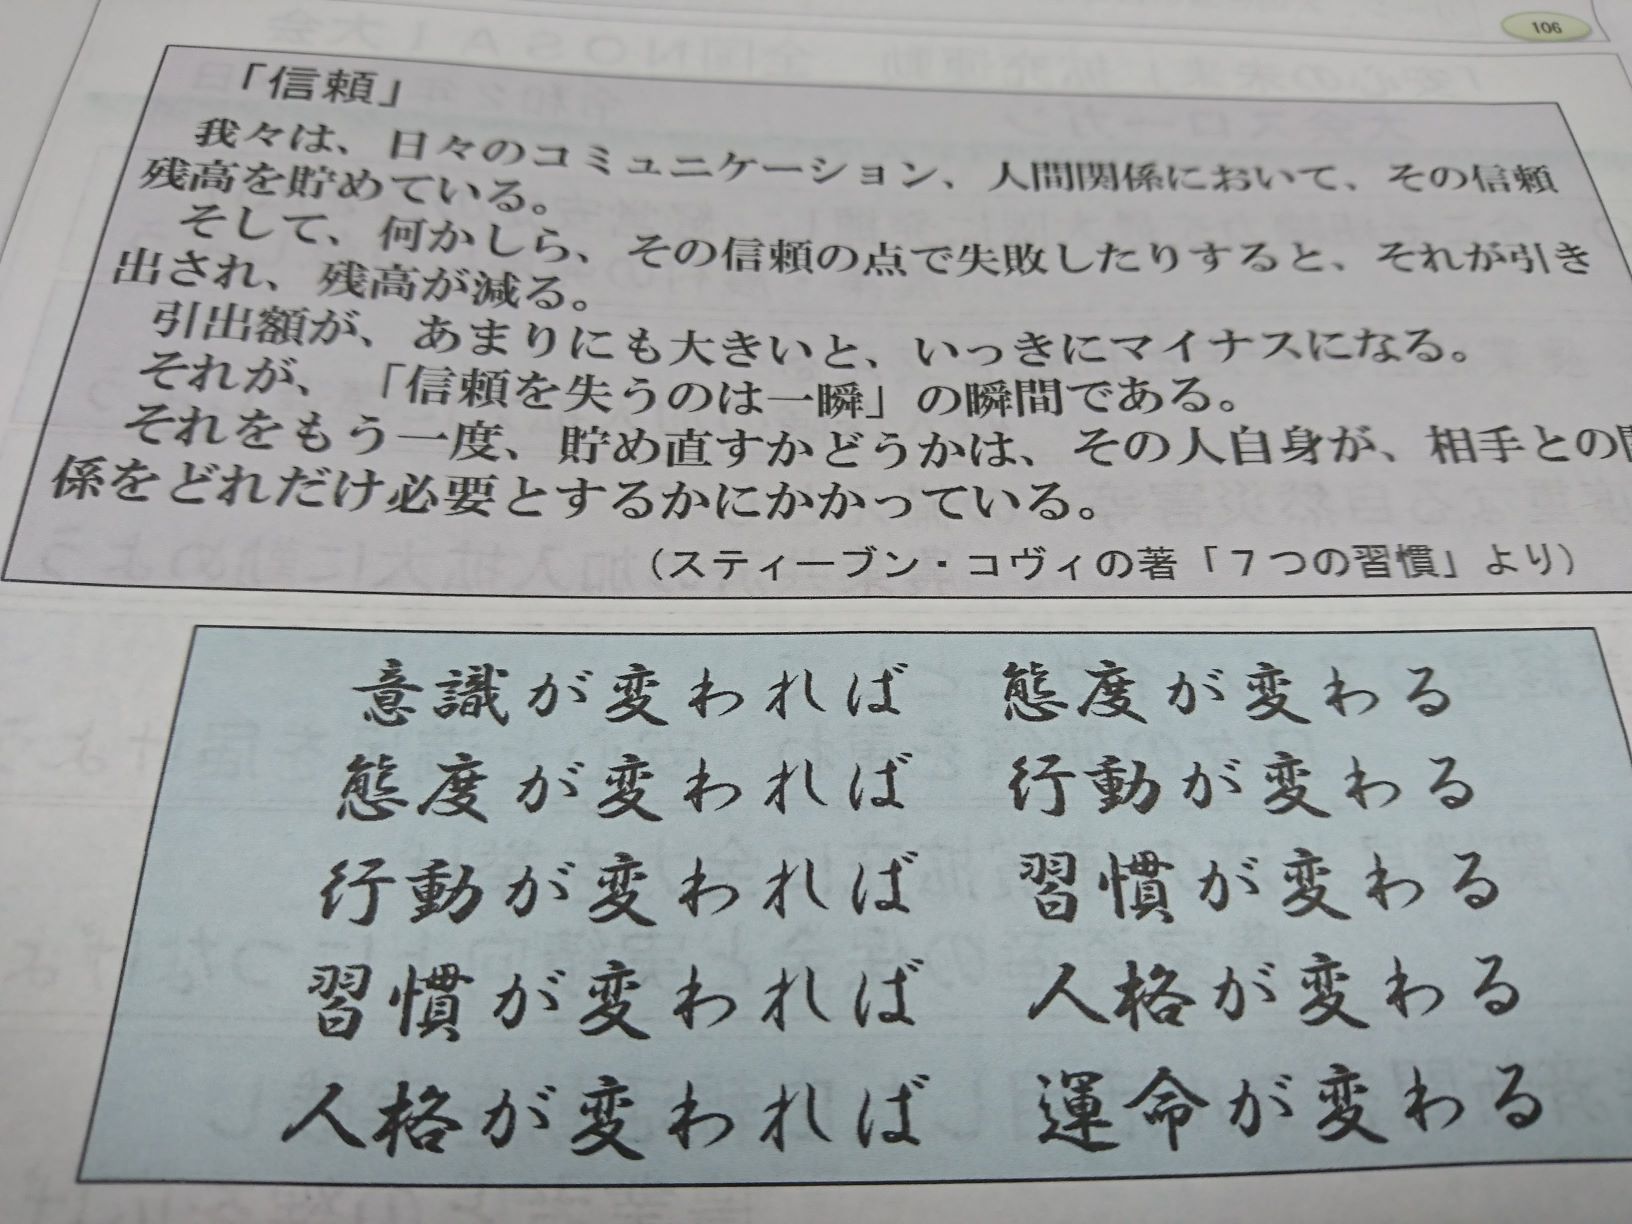 106
「信頼」
我々は、日々のコミュニケーション、人間関係において、その信頼
残高を貯めている。
そして、何かしら、その信頼の点で失敗したりすると、それが引き
出され、残高が減る。
引出額が、あまりにも大きいと、いっきにマイナスになる。
それが、「信頼を失うのは一瞬」の瞬間である。
それをもう一度、貯め直すかどうかは、その人自身が、相手との関
係をどれだけ必要とするかにかかっている。
(スティーブン・コヴィの著「７つの習慣」より)
意識が変われば 態度が変わる
態度が変われば 行動が変わる
行動が変われば 習慣が変わる
習慣が変われば 人格が変わる
人格が変われば 運命が変わる